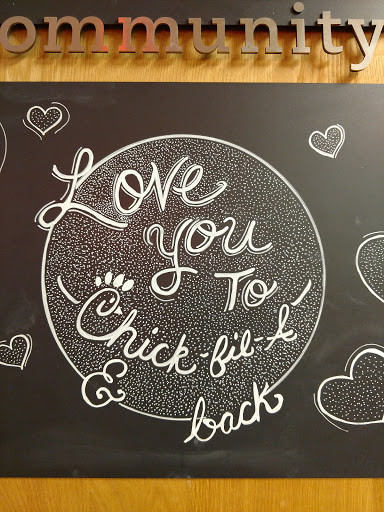 ommunity
Love
you
To
Chick-fil-A
&
back